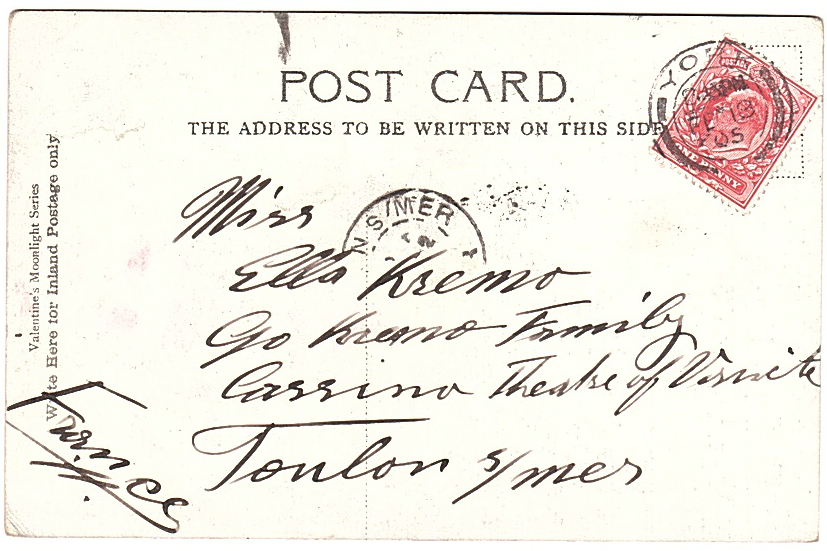 POST CARD.
THE ADDRESS TO BE WRITTEN ON THIS SIDE
Valentine's Moonlight Series
Write Here for Inland Postage only
YORK
05
PENNY
S/MER
Miss
Ella Kremo
Kremo Family
Cassino Theatre of
Toulon s/mer
France